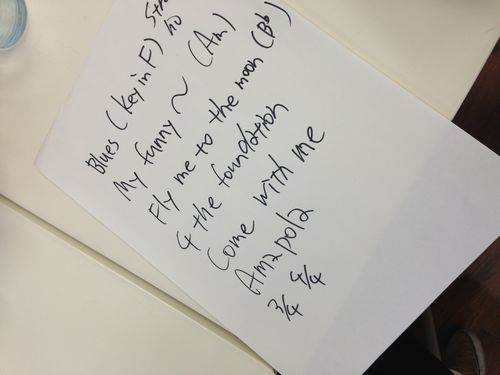 Blues (key in F)
My funny ~ (Am)
Fly me to the moon (Bb)
4 the foundation
Come with me
Amapola
3/4 4/4